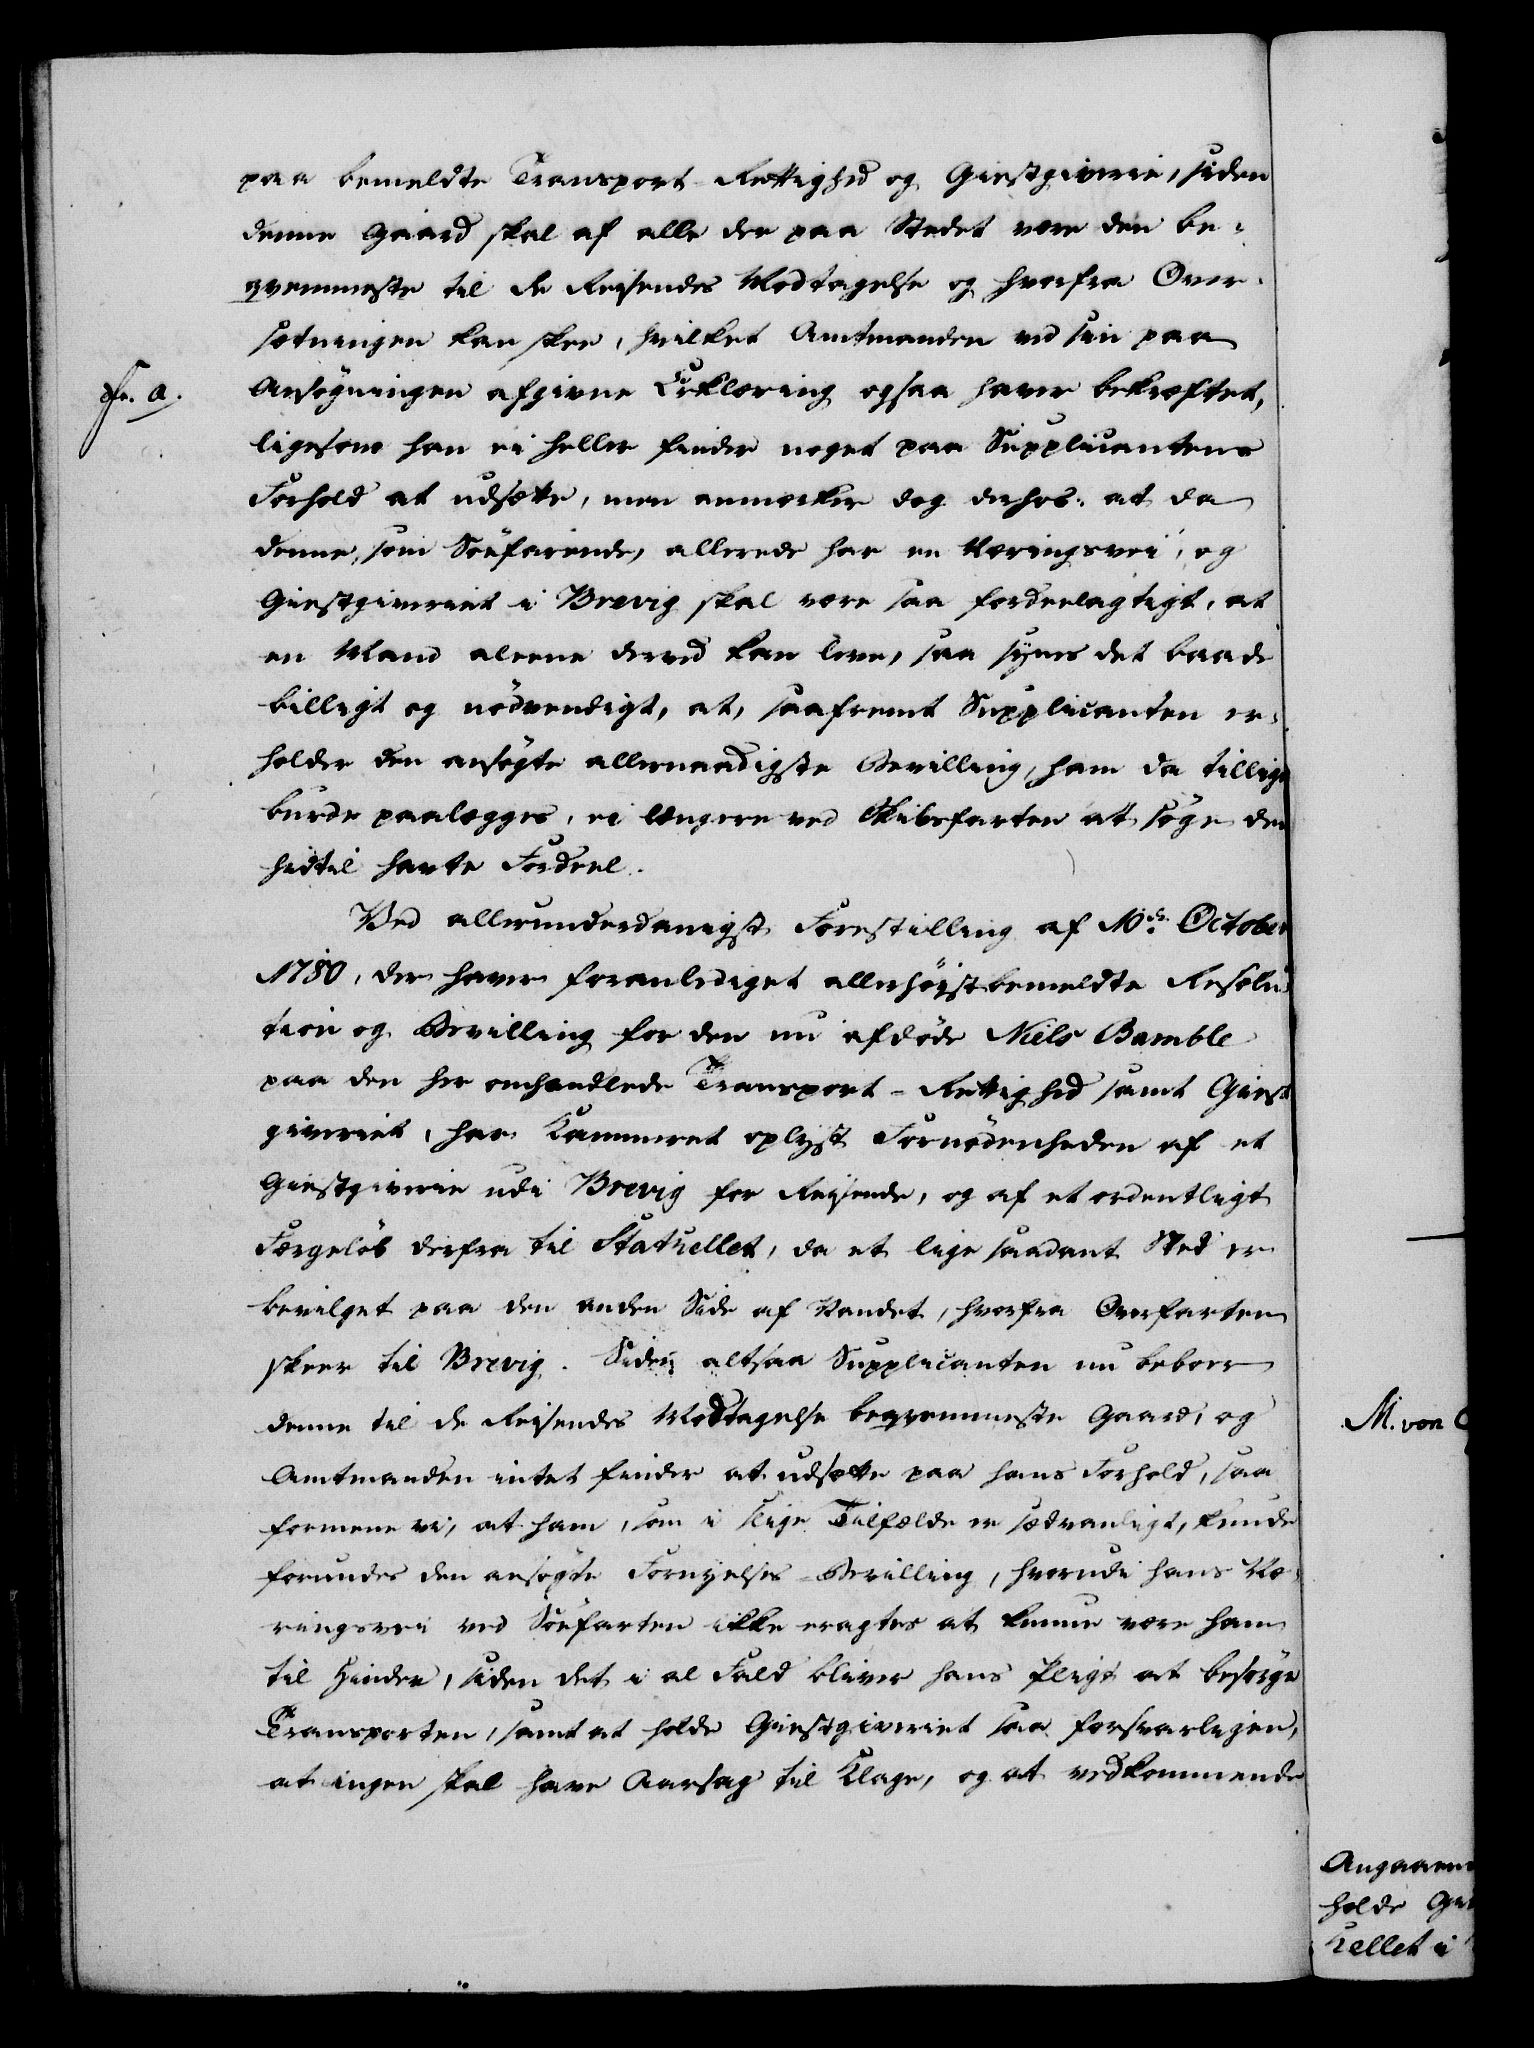 paa bemeldte Transport-Rettighed og Giestgiverie, siden
denne Gaard skal af alle der paa Stedet være den be-
qvemmeste til de Reisendes Modtagelse og hvorfra Over-
sætningen kan skee, hvilket Amtmanden ved sin paa
Ansøgningen afgivne Erklæring ogsaa haver bekræftet,
ligesom han ei heller finder noget paa Supplicantens
Forhold at udsætte, men anmærker dog derhos: at da
denne, som Søefarende, allerede har en Næringsvei, og
Giestgiveriet i Brevig skal være saa fordeelagtigt, at
en Mand aleene derved kan leve, saa synes det baade
billigt og nødvendigt, at, saafremt Supplicanten er-
holder den ansøgte allernaadigste Bevilling, ham da tillige
burde paalægges, ei længere ved Skibsfarten at søge den
hidtil havte Fordeel.
Ved allerunderdanigst Forestilling af 10de October
1780, der haver foranlediget allerhøistbemeldte Resolu-
tion og Bevilling for den nu afdøde Niels Bamble
paa den her omhandlede Transport-Rettighed samt Giest
giveriet, har Kammeret oplyst Fornødenheden af et
Giestgiverie udi Brevig for Reisende, og af et ordentligt
Færgeløb derfra til Stathellet, da et lige saadant Sted er
bevilget paa den anden Side af Vandet, hvorfra Overfarten
skeer til Brevig. Siden altsaa Supplicanten nu beboer
denne til de Reisendes Modtagelse beqvemmeste Gaard, og
Amtmanden intet finder at udsætte paa hans Forhold, saa
formene vi, at ham, som i slige Tilfælde er sædvanligt, kunde
forundes den ansøgte Fornyelses-Bevilling, hvorudi hans Næ-
ringsvei ved Søefarten ikke eragtes at kunne være ham
til Hinder, siden det i al Fald bliver hans Pligt at besørge
Transporten, samt at holde Giestgiveriet saa forsvarligen,
at ingen skal have Aarsag til Klage, og at vedkommende
a.
M. von
Angaaen
holde Gi
hellet i